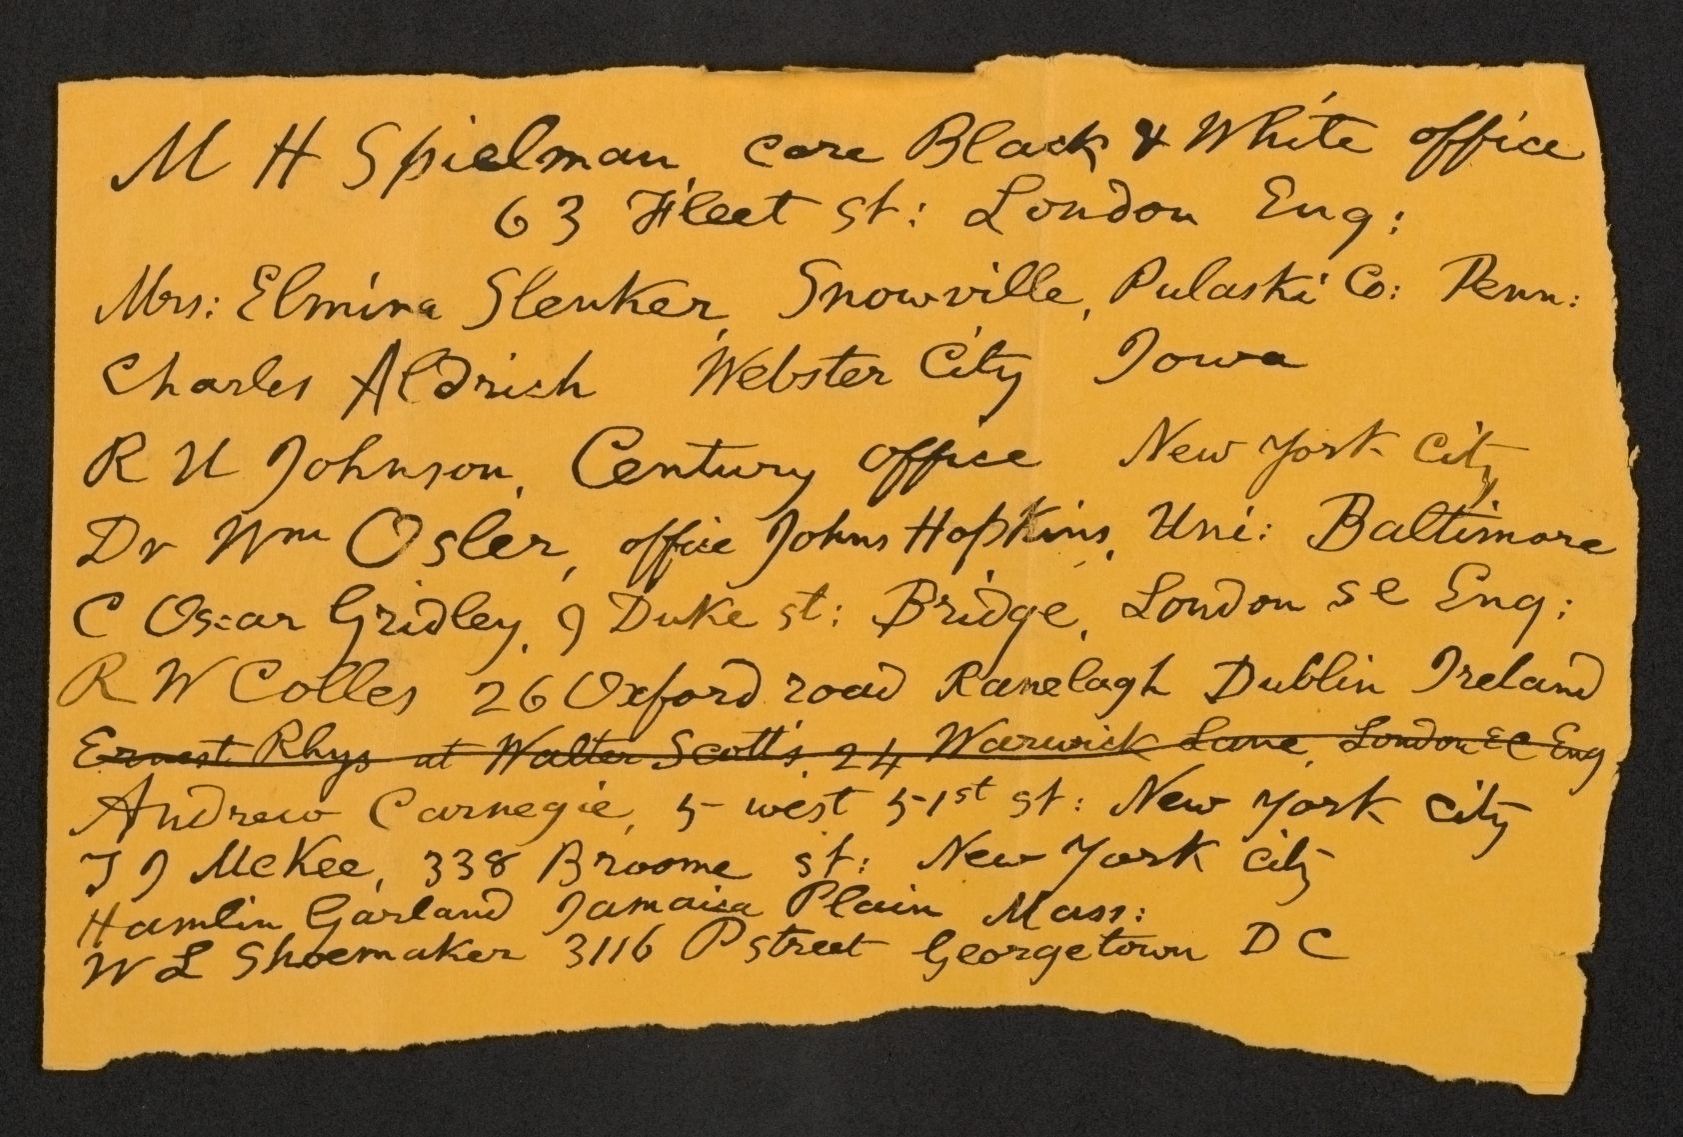 M H Spielman, care Black & White office
63 Fleet st: London Eng:
Mrs: Elmina Slenker, Snowville, Pulaski Co: Penn:
Charles Aldrich Webster City Iowa
R U Johnson, Century office New York City
Dr Wm Osler, office Johns Hopkins, Uni: Baltimore
C Oscar Gridley, 9 Duke st: Bridge, London S E Eng:
R W Colles 26 Oxford road Ranelagh Dublin Ireland
Ernest Rhys at Walter Scott's, 24 Warwick Lane, London E C Eng
Andrew Carnegie, 5 west 51st st: New York City
T J McKee, 338 Broome st: New York City
Hamlin Garland Jamaica Plain Mass:
W L Shoemaker 3116 P street Georgetown D C